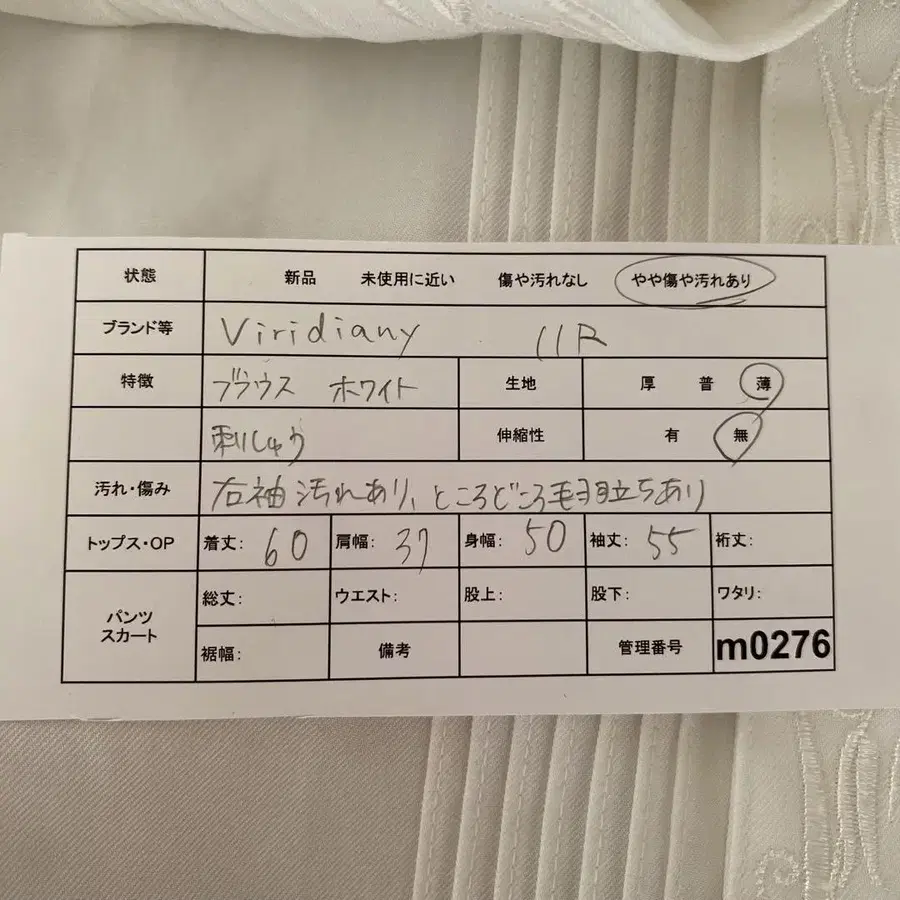 状態 新品 未使用に近い 傷や汚れなし やや傷や汚れあり
ブランド等 Viridiany 11R
特徴 ブラウス ホワイト 生地 厚 普 薄
刺しゅう 伸縮性 有 無
汚れ・傷み 右袖汚れあり、ところどころ毛羽立ちあり
トップス・OP 着丈: 60 肩幅: 37 身幅: 50 袖丈: 55 裄丈:
パンツ スカート 総丈: ウエスト: 股上: 股下: ワタリ:
裾幅: 備考 管理番号 m0276